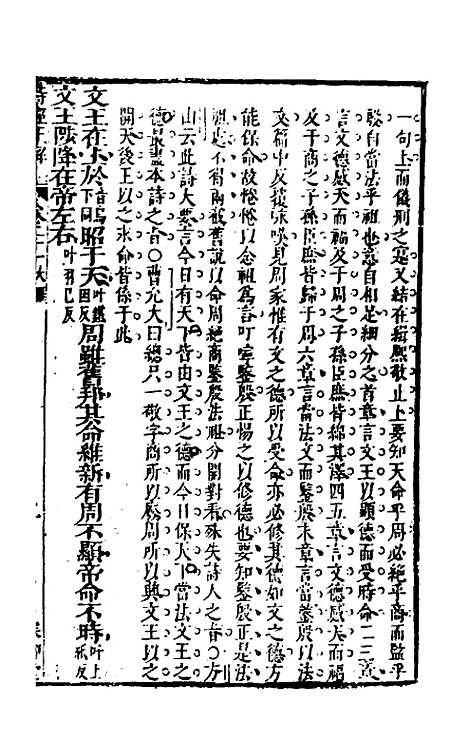 一句上而儀刑之寔又結在緝熙敬止上要知天命乎周必絕乎商而監乎
殷自當法乎祖也意自相足細分之首章言文王以顯德而受時命二三章
言文德感天而福及于周之子孫臣庶皆綿其澤四五章言文德感天而福
及于商之子孫臣庶皆歸于周六章言當法文而鑒殷末章言當鑒殷以法
文篇中反從咏嘆見周家惟有文之德所以受命亦必修其德如文之德方
能保命故惓惓以念祖為言叮寧鑒殷正惕之以修德也要知鑒殷正是法
祖處不得兩截舊說以命周絕商鑒殷法祖分開對看殊失詩人之旨○方
山云此詩大要言今日有天下皆由文王之德而今日保天下當法文王之
德最盡本詩之旨○曹允大曰總只一敬字商所以廢周所以興文王以之
開天後王以之永命皆係于此
文王在上於音烏下同昭于天叶鐵因反周雖舊邦其命維新有周不顯帝命不時叶上紙反
文王陟降在帝左右叶羽己反
詩經